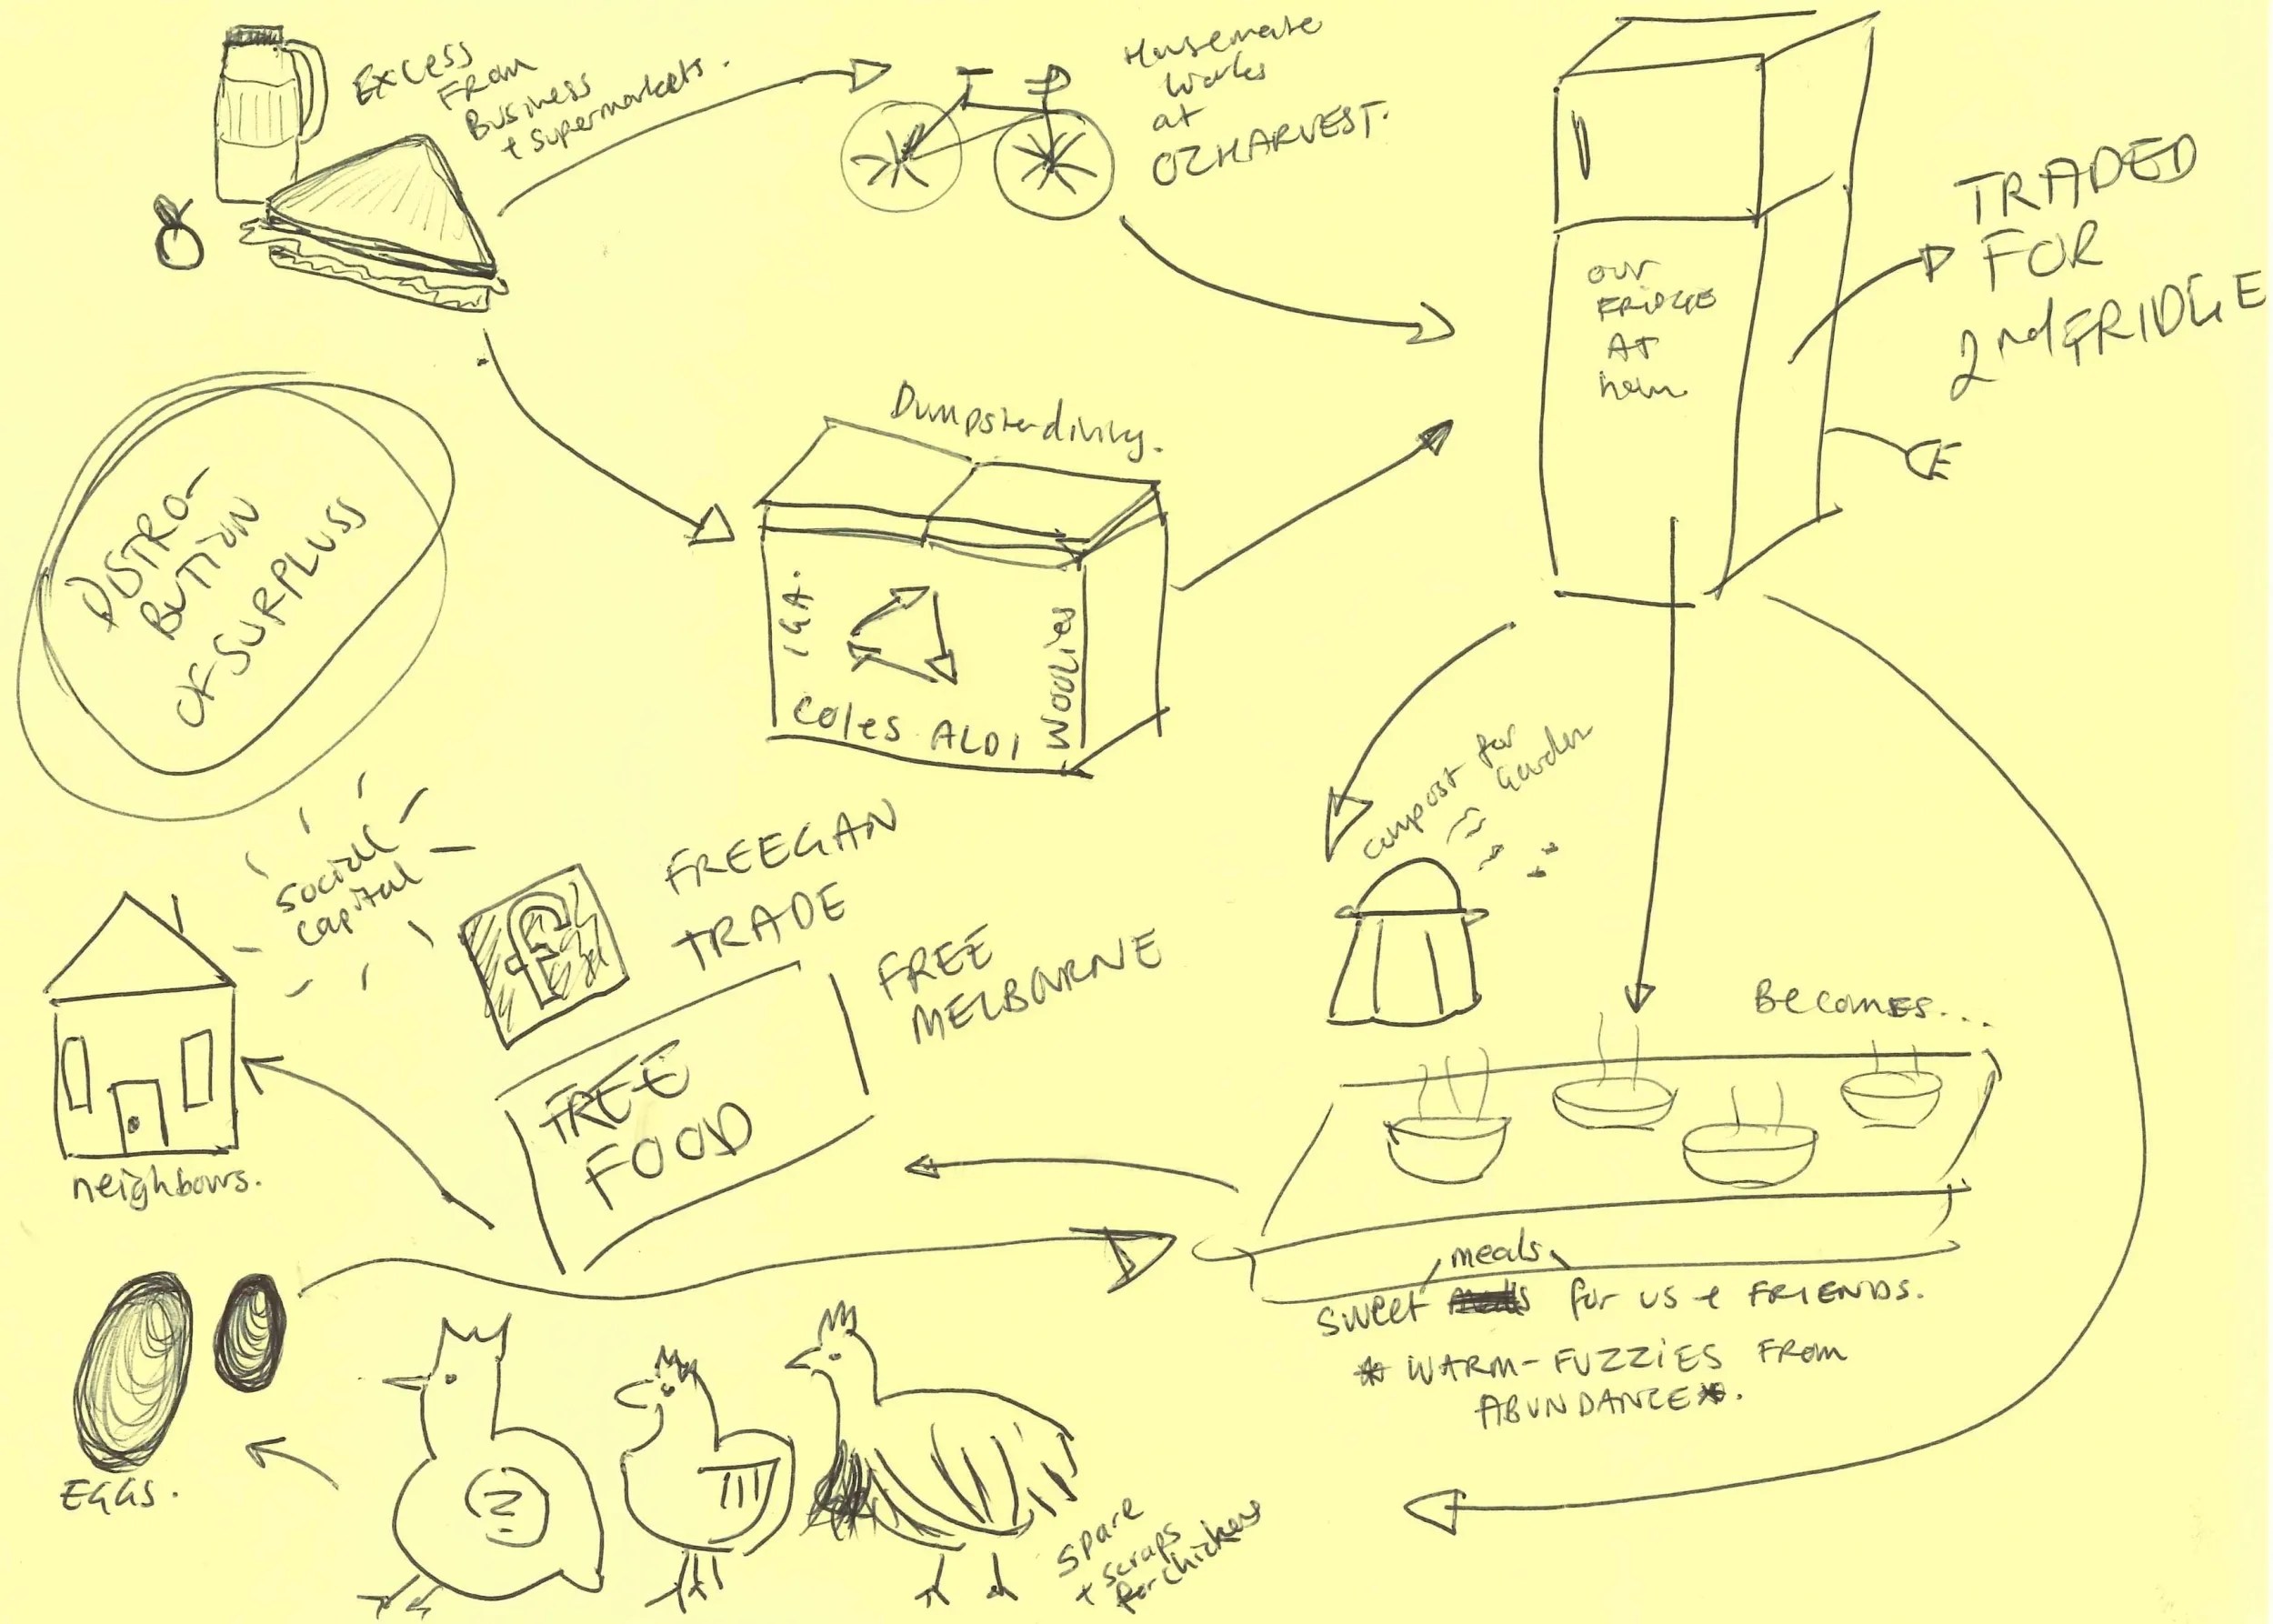 Excess
From
Business
+ supermarkets.
Housemate
works
at
OZHARVEST.
our
FRIDGE
At
hom
TRADED
FOR
2nd FRIDGE
Dumpsterdiving.
IGA.
Coles ALDI
Woolies
DISTRO-
BUTION
OF SURPLUSS
social
capital
FREEGAN
TRADE
FREE
MELBOURNE
FREE
FOOD
compost for
Garden
Becomes...
neighbours.
meals
sweet for us + FRIENDS.
* WARM-FUZZIES FROM
ABUNDANCE*.
EGGS.
spare
+ scraps
for chickens